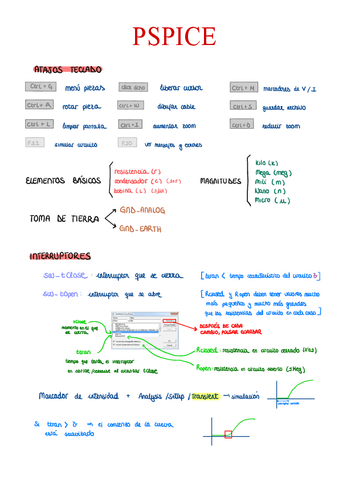 PSPICE
ATAJOS TECLADO
Ctrl + G menú piezas
click dcho liberar cursor
Ctrl + M marcadores de V / I
Ctrl + R rotar pieza
Ctrl + W dibujar cable
Ctrl + S guardar archivo
Ctrl + L limpiar pantalla
Ctrl + I aumentar zoom
Ctrl + O reducir zoom
F11 simular circuito
F10 ver mensajes y errores
ELEMENTOS BÁSICOS
resistencia (R)
condensador (C)
bobina (L)
MAGNITUDES
Kilo (K)
Mega (meg)
Mili (m)
Nano (n)
Micro (u)
TOMA DE TIERRA
GND_ANALOG
GND_EARTH
INTERRUPTORES
sw-tclose: interruptor que se cierra
[ttran < tiempo característico del circuito]
sw-topen: interruptor que se abre
[Rclosed y Ropen deben tener valores mucho
más pequeños y mucho más grandes
que las resistencias del circuito en cada caso]
tclose
momento en el que
se cierra
ttran
tiempo que tarda el interruptor
DESPUÉS DE CADA
CAMBIO, PULSAR GUARDAR
Rclosed: resistencia en circuito cerrado
Ropen: resistencia en circuito abierto
Marcador de intensidad + Analysis/Setup/Transient → simulación
Si ttran > → el comienzo de la curva
está